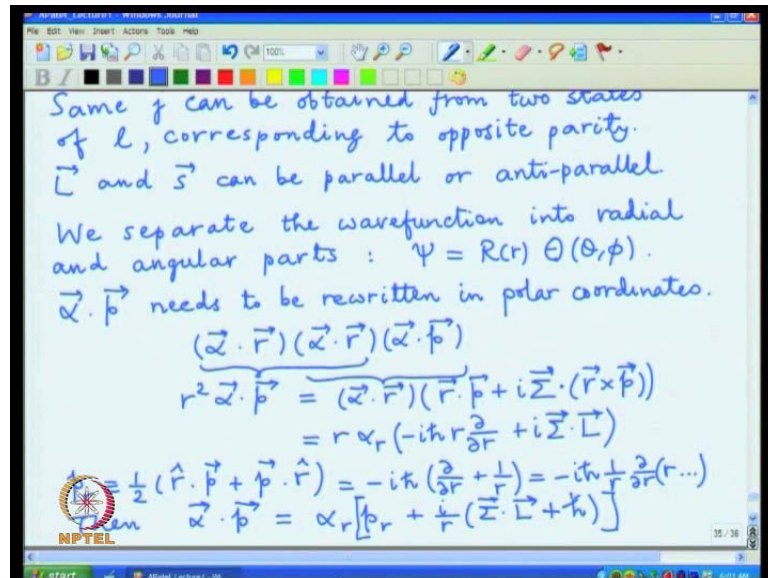 APatel_Lecture1 - Windows Journal
File Edit View Insert Actions Tools Help
100%
B I
Same j can be obtained from two states
of l, corresponding to opposite parity.
L⃗ and S⃗ can be parallel or anti-parallel.
We separate the wavefunction into radial
and angular parts : Ψ = R(r) Θ(θ,φ).
α⃗.p⃗ needs to be rewritten in polar coordinates.
(α⃗.r⃗)(α⃗.r⃗)(α⃗.p⃗)
r² α⃗.p⃗ = (α⃗.r⃗)(r⃗.p⃗ + iΣ⃗.(r⃗×p⃗))
= r αᵣ(-iħr ∂/∂r + iΣ⃗.L⃗)
= 1/2 (r̂.p⃗ + p⃗.r̂) = -iħ(∂/∂r + 1/r) = -iħ 1/r ∂/∂r (r...)
Then α⃗.p⃗ = αᵣ[pᵣ + i/r (Σ⃗.L⃗ + ħ)]
NPTEL
35 / 36
start
6:01 AM